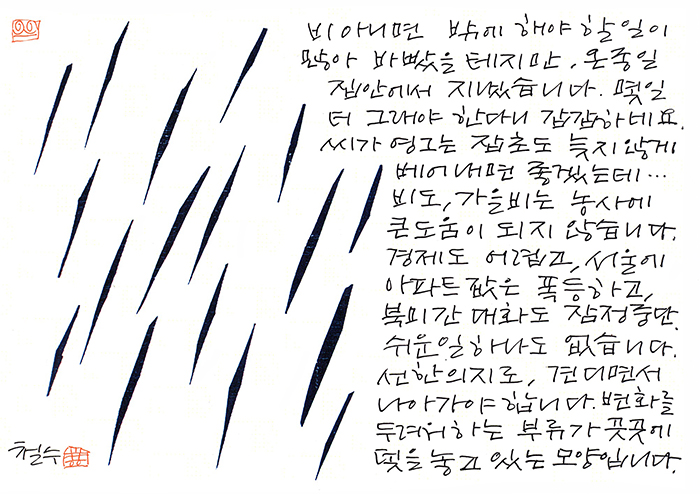 비 아니면 밖에 해야 할 일이
많아 바빴을 테지만, 온종일
집안에서 지냈습니다. 몇일
더 그래야 한다니 갑갑하네요.
씨가 영그는 잡초도 늦지 않게
베어내면 좋겠는데…
비도, 가을비는 농사에
큰 도움이 되지 않습니다.
경제도 어렵고, 서울에
아파트 값은 폭등하고,
북미간 대화도 잠정중단.
쉬운 일 하나도 없습니다.
선한 의지로, 견디면서
나아가야 합니다. 변화를
두려워하는 부류가 곳곳에
덫을 놓고 있는 모양입니다.
철수